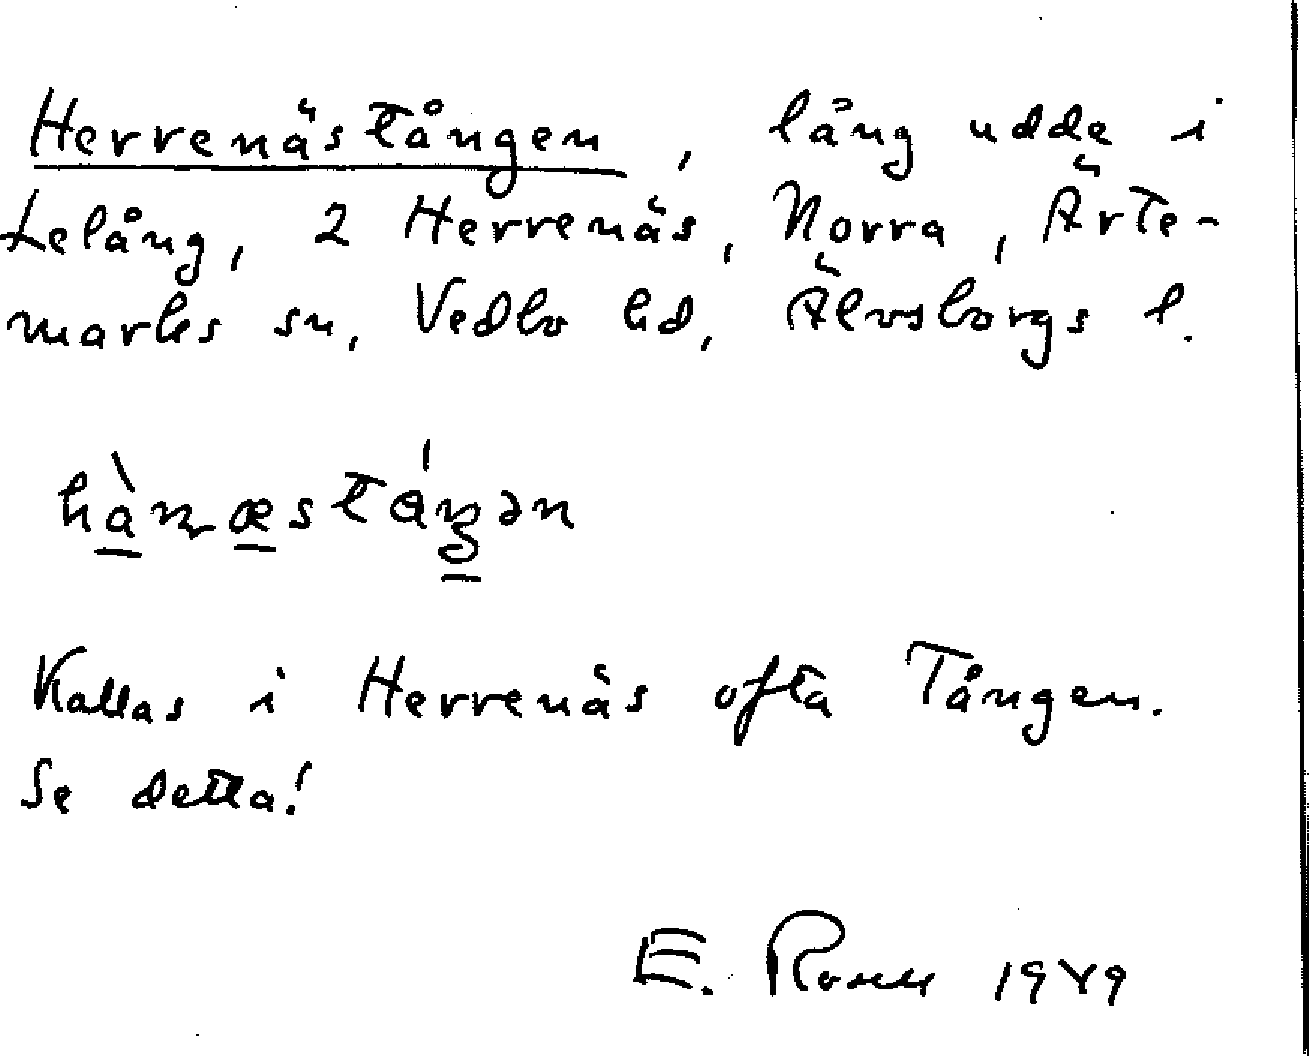 Herrenästången, lång udde i
Lelång, 2 Herrenäs, Norra, Ärte-
marks sn, Vedbo hd, Älvsborgs l.
Kallas i Herrenäs ofta Tången.
Se detta!
E. 1949